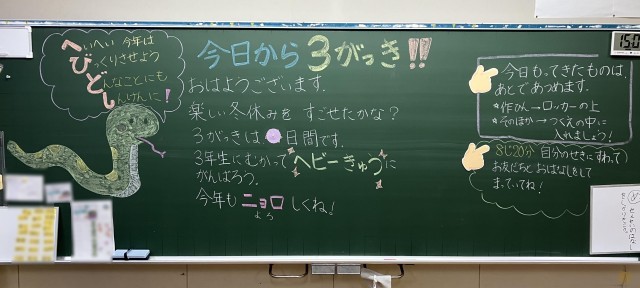 へいへい 今年は
びっくりさせよう
どんなことにも
しんけんに!
今日から3がっき!!
おはようございます.
楽しい冬休みを すごせたかな?
3がっきは 日間です.
3年生にむかって ヘビーきゅうに
がんばろう.
今年も ニョロ しくね!
よろ
今日もってきたものは
あとであつめます.
*作ひん→ロッカーの上
*そのほか→つくえの中に
入れましょう!
8じ20分 自分のせきにすわって
お友だちとおはなしをして
まっていてね!